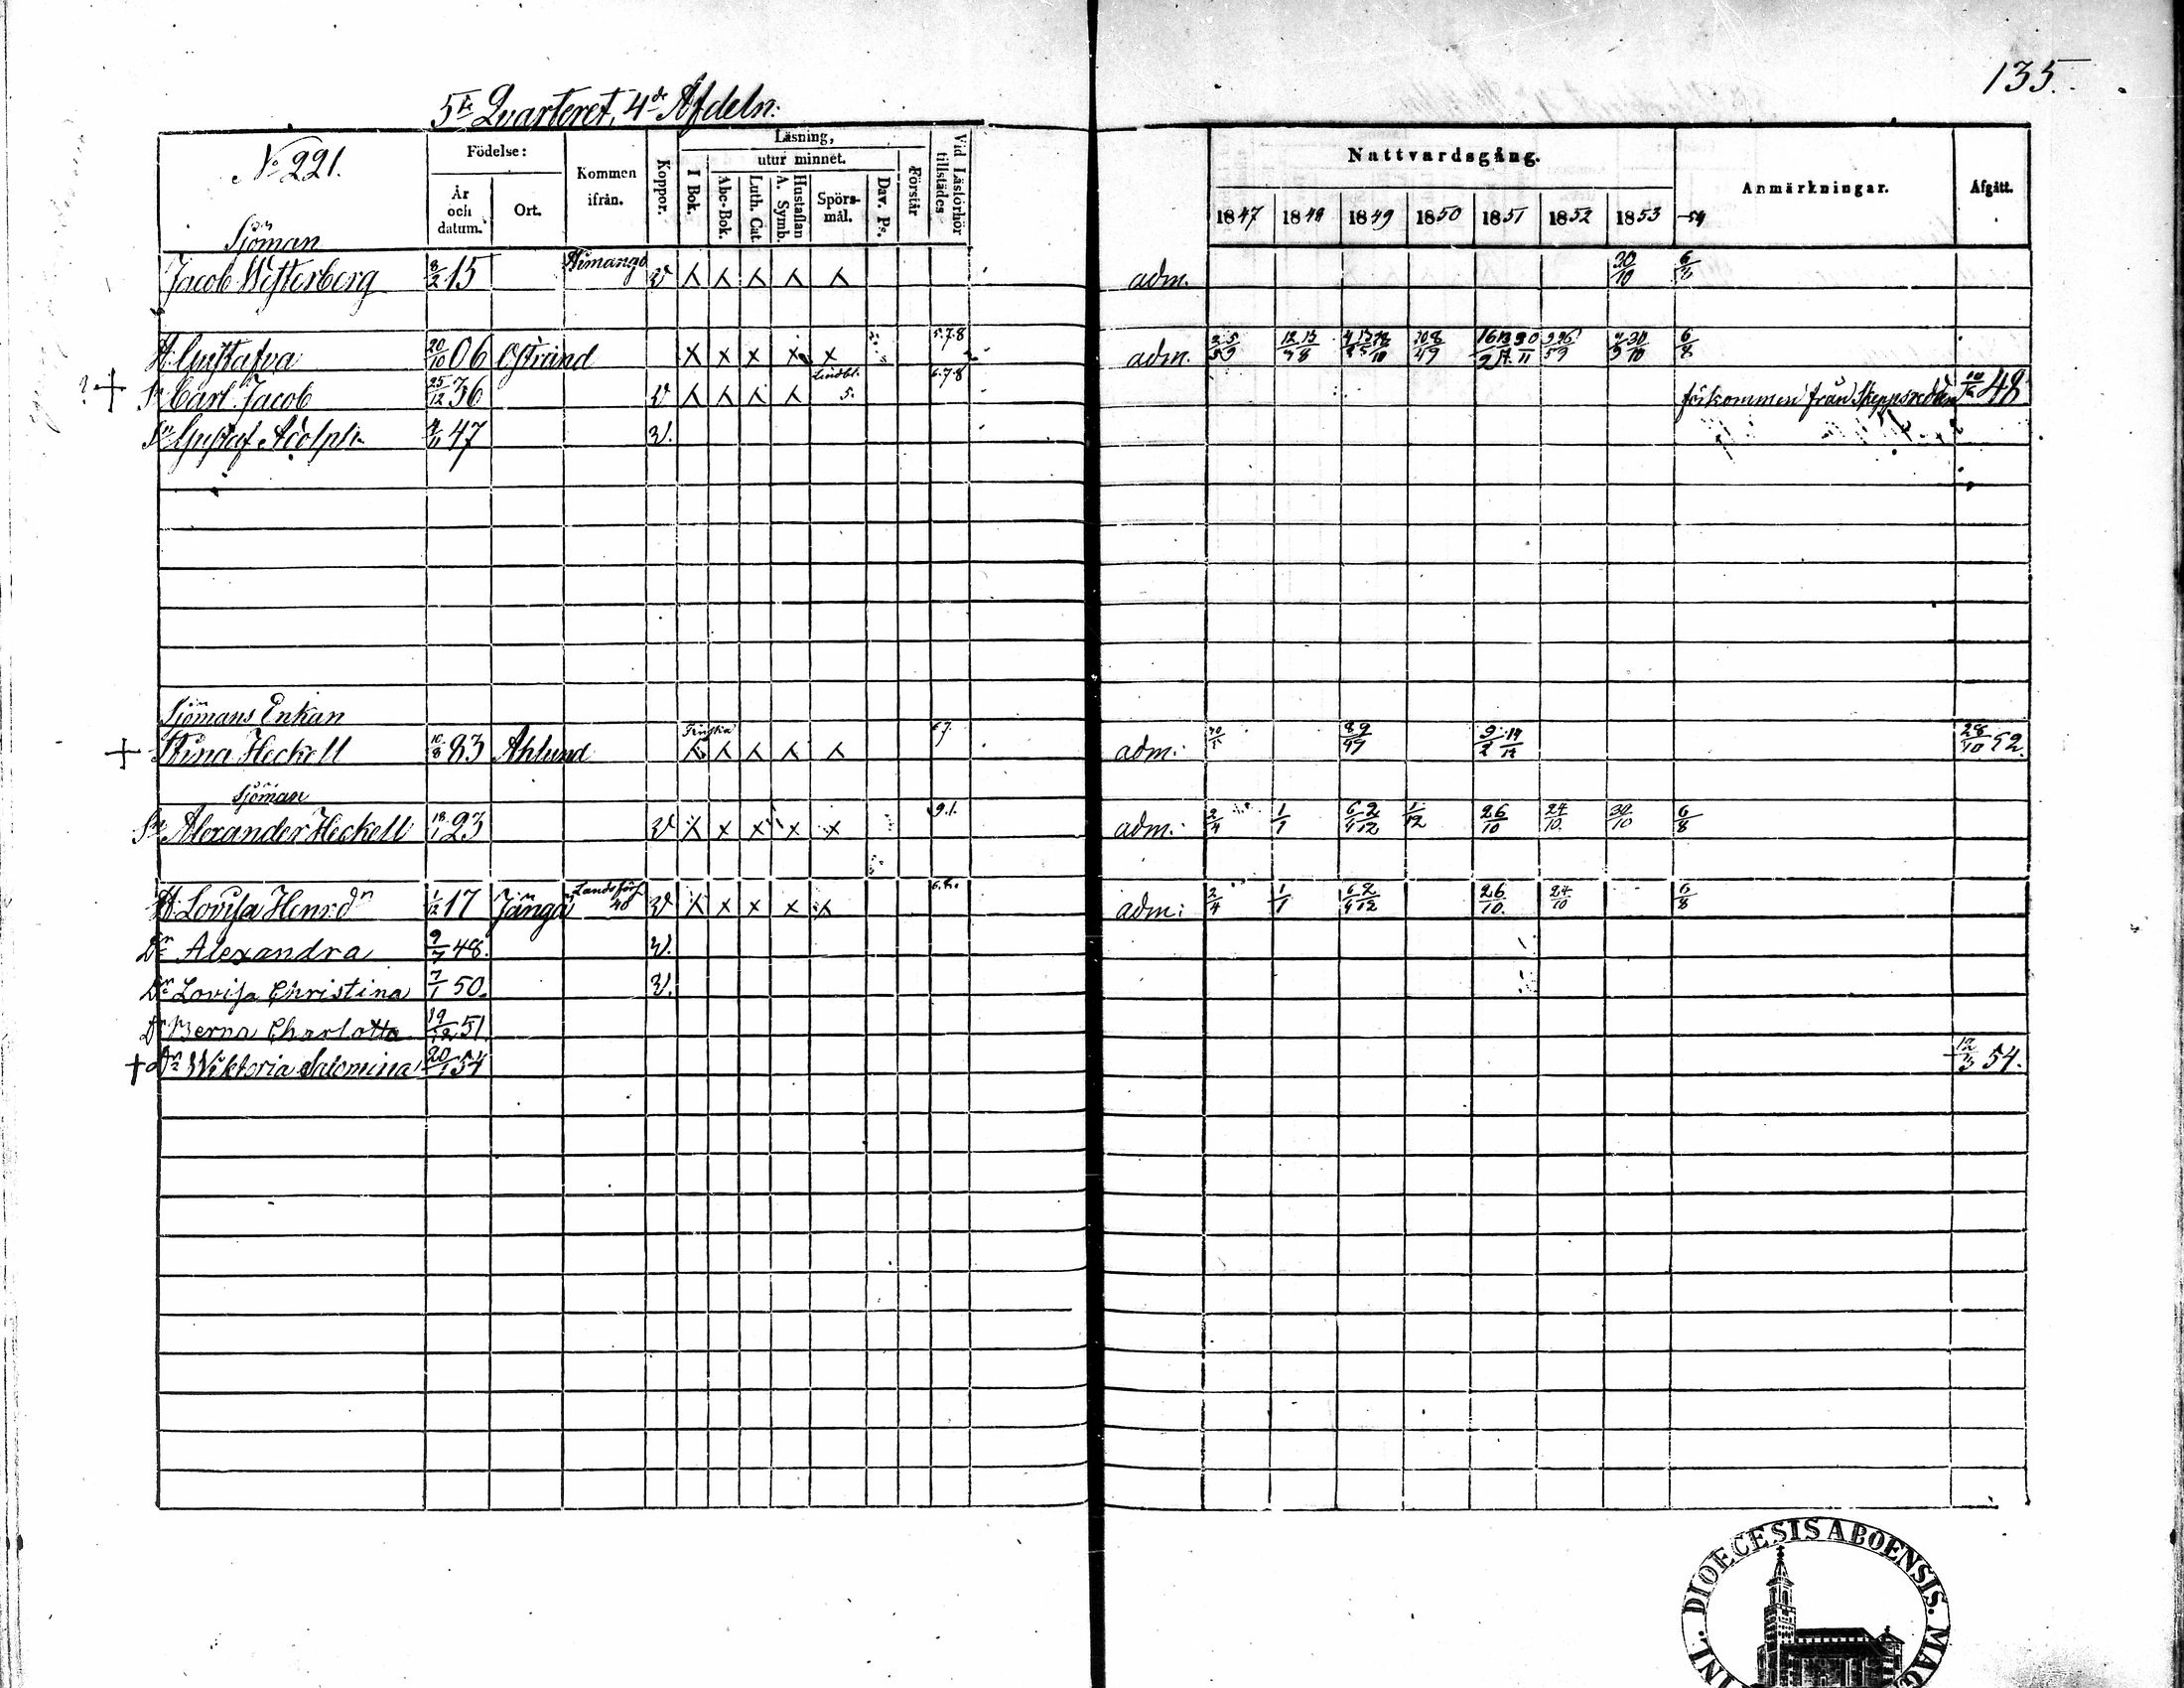 135.
5te Quarteret, 4de Afdeln.
No 221.
Födelse:
År och datum.
Ort.
Kommen ifrån.
Koppor.
Läsning,
utur minnet.
I Bok.
Abc-Bok.
Luth. Cat.
Hustaflan A. Symb.
Spörs-mål.
Dav. Ps.
Förstår
Vid Läsförhör tillstädes
Nattvardsgång.
1847 1848 1849 1850 1851 1852 1853 -54
Anmärkningar.
Afgått.
Sjöman
Jacob Westerberg 8/2 15 Himango v x x x x x adm. 30/10 6/8
H. Gustafva 20/10 06 Östrand x x x x x 5.7.8 adm. 6/8
Lindbl.
? + Sn Carl Jacob 25/12 36 v x x x x 5. 6.7.8 förkommen från Skeppsredden 48
Sn Gustaf Adolph 47 v.
Sjömans Enkan
Finska
+ Stina Heckell 10/8 83 Ahlund x x x x x 67. adm. 28/10 52.
Sjöman
Sn Alexander Heckell 18/1 23 v x x x x x 9.1. adm. 2/4 1/1 6/4 2/12 1/12 26/10 24/10 30/10 6/8
H. Lovisa Henrdn 1/12 17 Jänga Landsförs. 40 v x x x x x adm: 2/4 1/1 6/4 2/12 26/10. 24/10 6/8
Dr Alexandra 9/7 48. v.
Dr Lovisa Christina 7/1 50. v.
Dr Berna Charlotta 19/12 51.
+ Dr Wiktoria Salomina 20/1 54 12/3 54.
DIOECESIS ABOENSIS. MAG
INL.